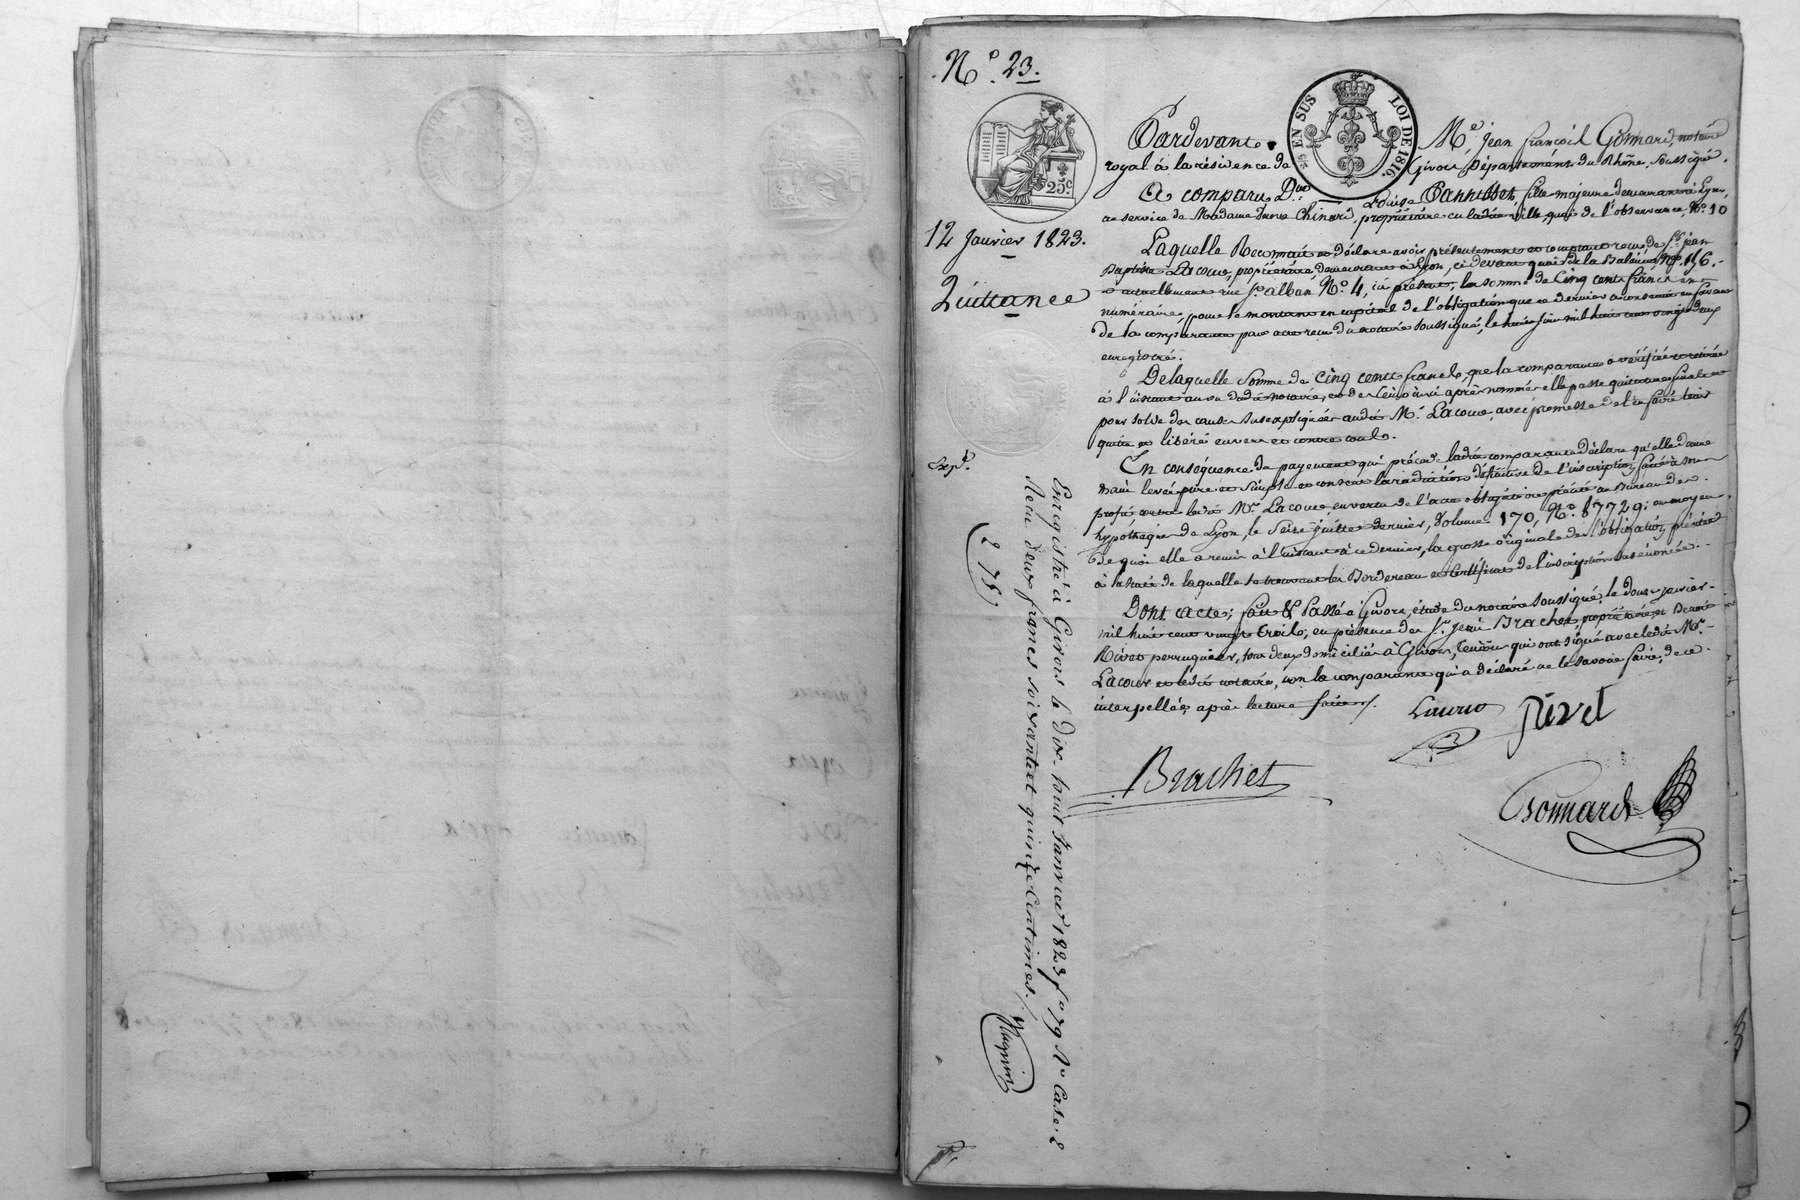 N.° 23.
EN SUS
LOI DE 1816.
25.c
12 Janvier 1823.
Quittance
Exp.
Pardevant M.e Jean françois Gonnard, notaire
royal à la résidence de Givors Département du Rhône, soussigné.
A comparu D.lle Louise Pannisset, fille majeure demeurant à Lyon,
au service de Madame Chinard, propriétaire en ladite ville, quai de l'observance, N.° 10
Laquelle Reconnait et Déclare avoir présentement et comptant reçu de S.r Jean
Baptiste Lacour, propriétaire, demeurant à Lyon, ci devant quai de la Baleine N.° 156.
et actuellement rue S.t alban N.° 4, ici présent, la somme de Cinq cents francs en
numéraire, pour le montant en capital de l'obligation que ce dernier a consentie en faveur
de la comparante par acte reçu du notaire soussigné, le huit juin mil huit cent vingt deux
enregistré.
De laquelle somme de cinq cents francs, que la comparante a vérifiée et retirée
à l'instant au vu dudit notaire, et des témoins après nommés elle passe quittance finale et
pour solde des causes susexpliquées audit M.r Lacour, avec promesse de l'en faire tenir
quitte et libéré envers et contre tous.
En conséquence du payement qui précède ladite comparante déclare qu'elle donne
main levée pure et simple et consent la radiation définitive de l'inscription faite à son
profit contre ledit M.r Lacour, en vertu de l'acte obligatoire précité au Bureau des
hypothèques de Lyon, le seize juillet dernier, volume 170, N.° 87729; au moyen
de quoi elle a remis à l'instant à ce dernier, la grosse originale de l'obligation précitée
à la suite de laquelle se trouvent les Bordereau et Certificat de l'inscription susénoncée.
Dont acte; fait & Passé à Givors, étude du notaire soussigné, le douze janvier
mil huit cent vingt trois; en présence des S.rs Jean Brachet, propriétaire, et Benoit
Rivet perruquier, tous deux domiciliés à Givors, témoins qui ont signé avec ledit M.r
Lacour et ledit notaire, non la comparante qui a déclaré ne le savoir faire, de ce
interpellée, après lecture faite.
Lacour Rivet
Brachet
Gonnard
Enregistré à Givors le dix huit Janvier 1823 f.° 79 R.° Case. 2
Reçu deux francs soixante et quinze Centimes.
2 75